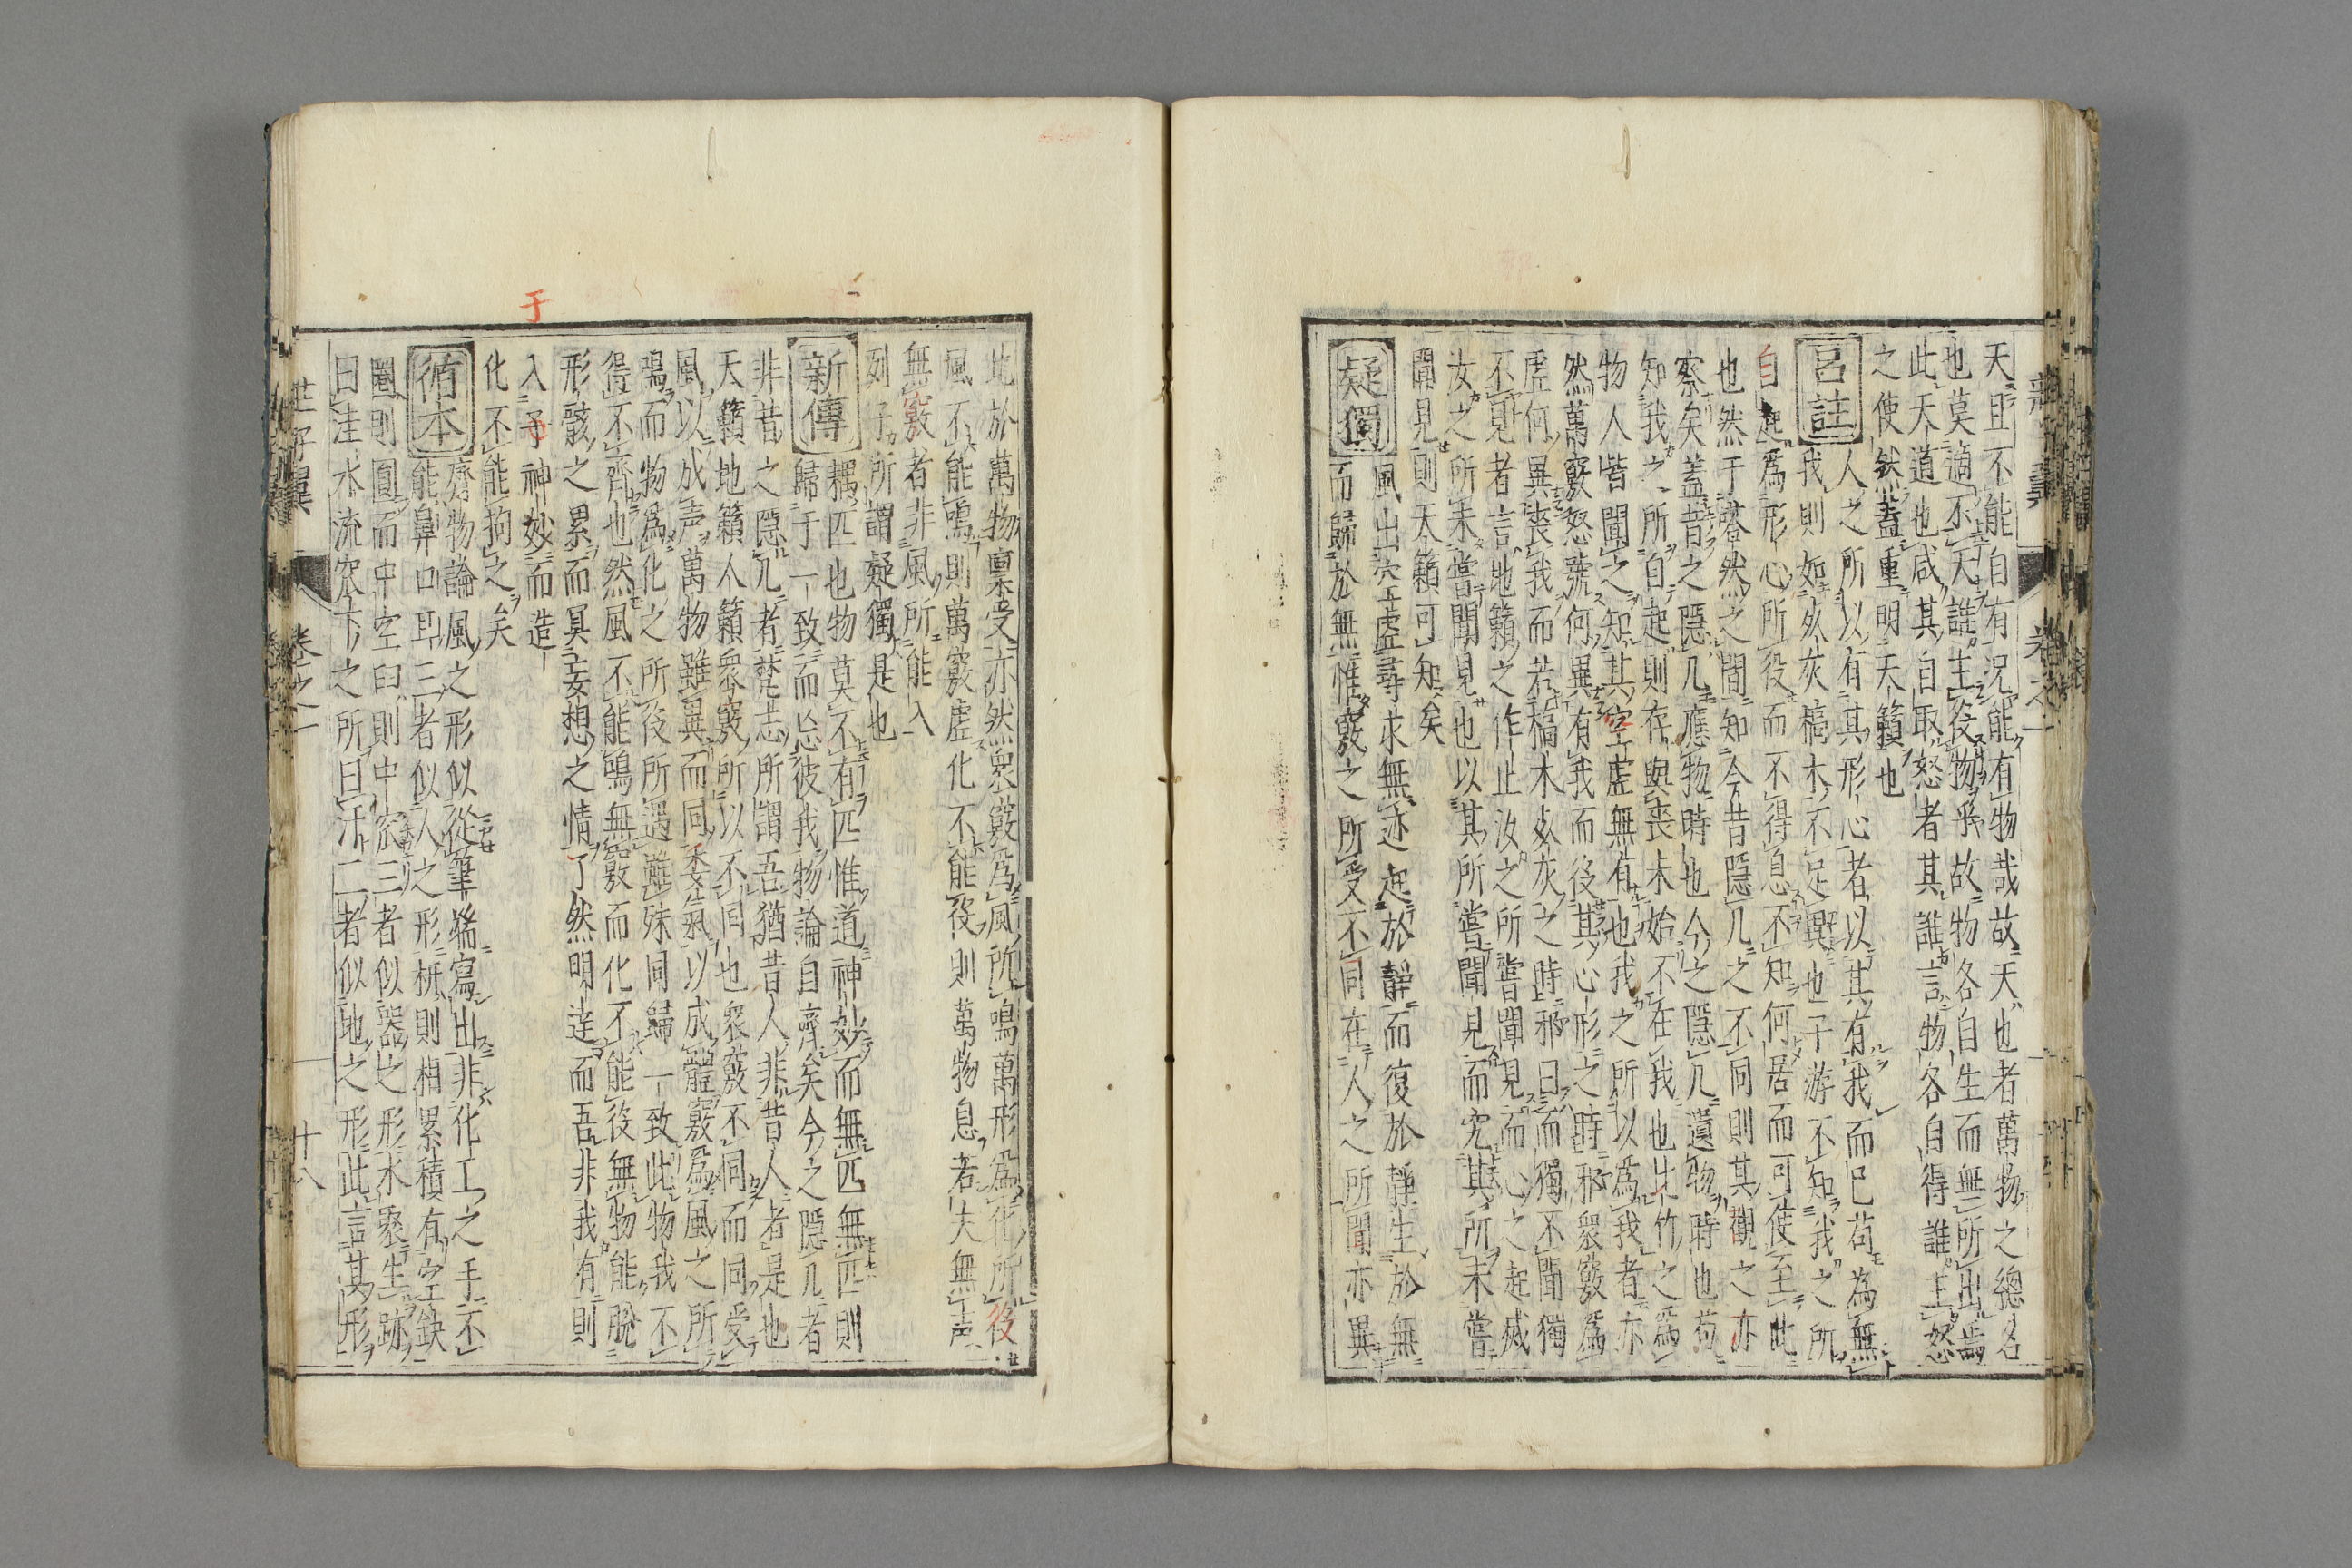 天且不能自有況能有物哉故天也者萬物之總名
也莫適不天誰主役物乎故物各自生而無所出焉
此天道也咸其自取怒者其誰言物各自得誰主怒
之使然蓋重明天籟也
呂註
人之所以有其形心者以其有我而已苟為無
我則如死灰槁木不足異也子游不知我之所
自起爲形心所役而不得息不知何居而可使至此
也然于嗒然之間知今昔隱几之不同則其觀之亦
察矣蓋昔之隱几應物時也今之隱几遺物時也苟
知我之所自起則存與喪未始不在我也比竹之爲
物人皆聞之知其空虛無有也我之所以爲我者亦
然萬竅怒號何異有我而役其心形之時邪衆竅爲
虛何異喪我而若槁木死灰之時邪曰而獨不聞獨
不見者言地籟之作止汝之所嘗聞見而心之起滅
汝之所未嘗聞見也以其所嘗聞見而究其所未嘗
聞見則天籟可知矣
疑獨
風出空虛尋求無迹起於靜而復於靜生於無
而歸於無惟竅之所受不同在人之所聞亦異
此於萬物稟受亦然衆竅爲風所鳴萬形爲化所役
風不能鳴則萬竅虛化不能役則萬物息若夫無声
無竅者非風所能入
列子所謂疑獨是也
新傳
耦匹也物莫不有匹惟道神妙而無匹無匹則
歸于一致而忘彼我物論自齊矣今之隱几者
非昔之隱几者楚志所謂吾猶昔人非昔人者是也
天籟地籟人籟衆竅所以不同也衆竅不同而同受
風以成声萬物雖異而同委氣以成體竅爲風之所
鳴而物爲化之所役所遇雖殊同歸一致此物我不
得不齊也然風不能鳴無竅而化不能役無物能脫
形骸之累而冥妄想之情了然明達而吾非我有則
入于神妙而造
化不能拘之矣
于
循本
齊物論風之形似從筆端寫出非化工之手不
能鼻口耳三者似人之形枅則相累積有空缺
圈則圓而中空臼則中窊三者似器之形水聚生跡
曰洼水流窊下之所曰汙二者似地之形此言其形
莊子翼
卷之一
十八